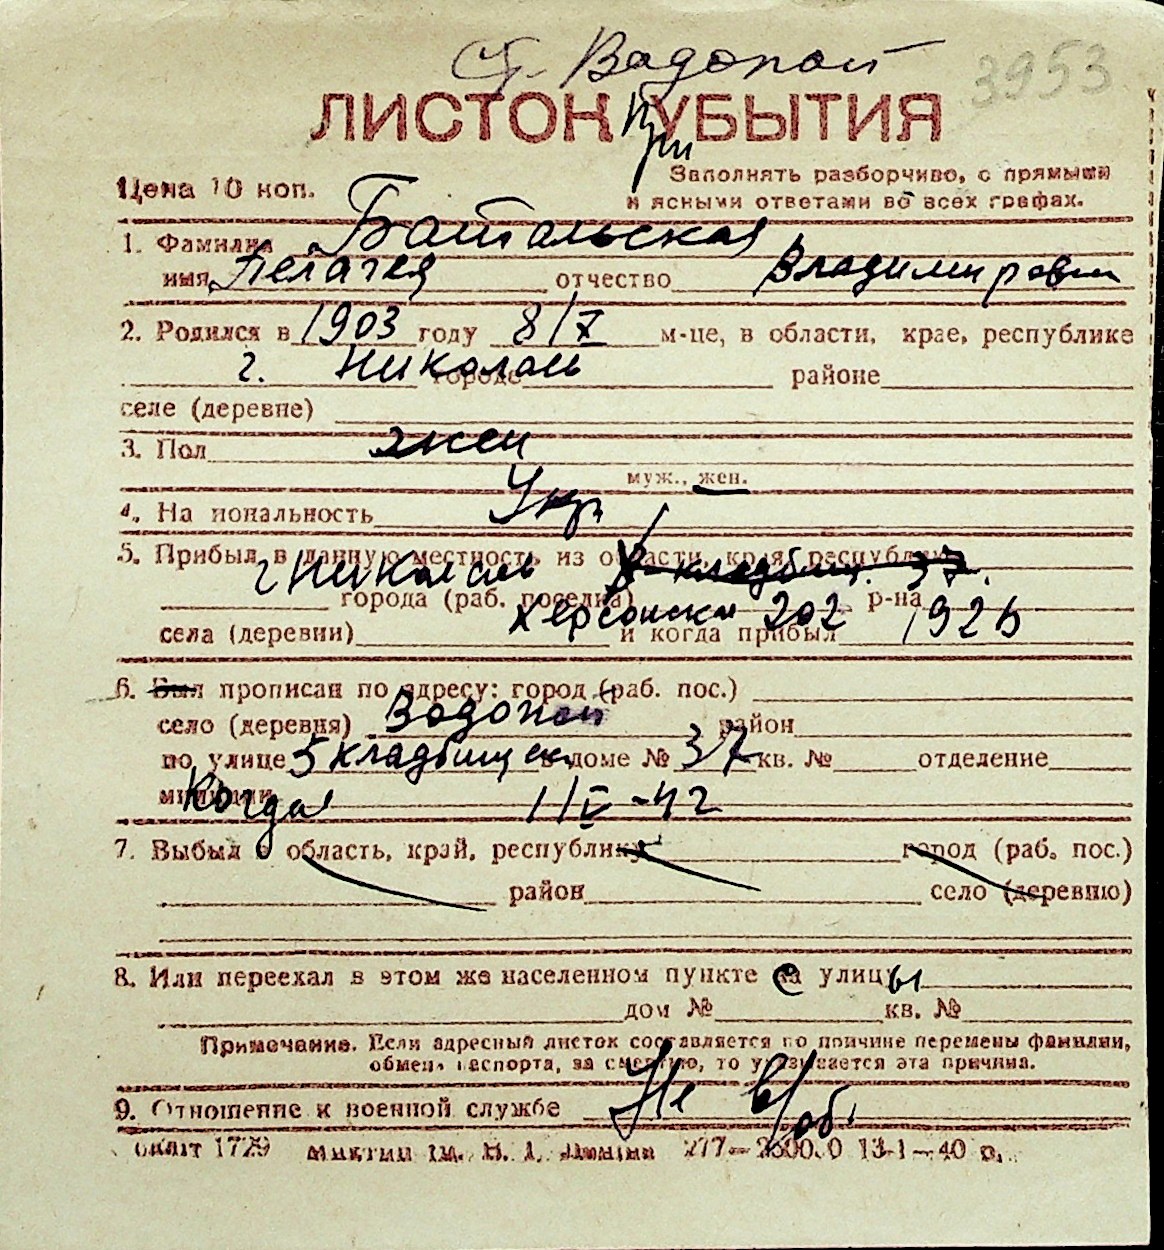 ст. Водопой
3953
ЛИСТОК УБЫТИЯ
При
Цена 10 коп.
Заполнять разборчиво, с прямыми
и ясными ответами во всех графах.
1. Фамилия Батальская
имя Пелагея отчество Владимировн
2. Родился в 1903 году 8/X м-це, в области, крае, республике
г. Николаев городе районе
селе (деревне)
3. Пол жен
муж., жен.
4. На иональность Укр
5. Прибыл в данную местность из области, края, республики
г Николаев кладбищ. 37.
города (раб. поселка) р-на
Херсонская 202 1926
села (деревни) и когда прибыл
6. Был прописан по адресу: город (раб. пос.)
село (деревня) Водопой район
по улице 5 кладбищен доме № 37 кв. № отделение
милиции Когда 1/V-42
7. Выбыл в область, край, республику город (раб. пос.)
район село (деревню)
8. Или переехал в этом же населенном пункте с улицы
дом № кв. №
Примечание. Если адресный листок составляется по причине перемены фамилии,
обмена паспорта, за смертью, то указывается эта причина.
9. Отношение к военной службе Не в/об.
1729 277— 13-1—40 р.